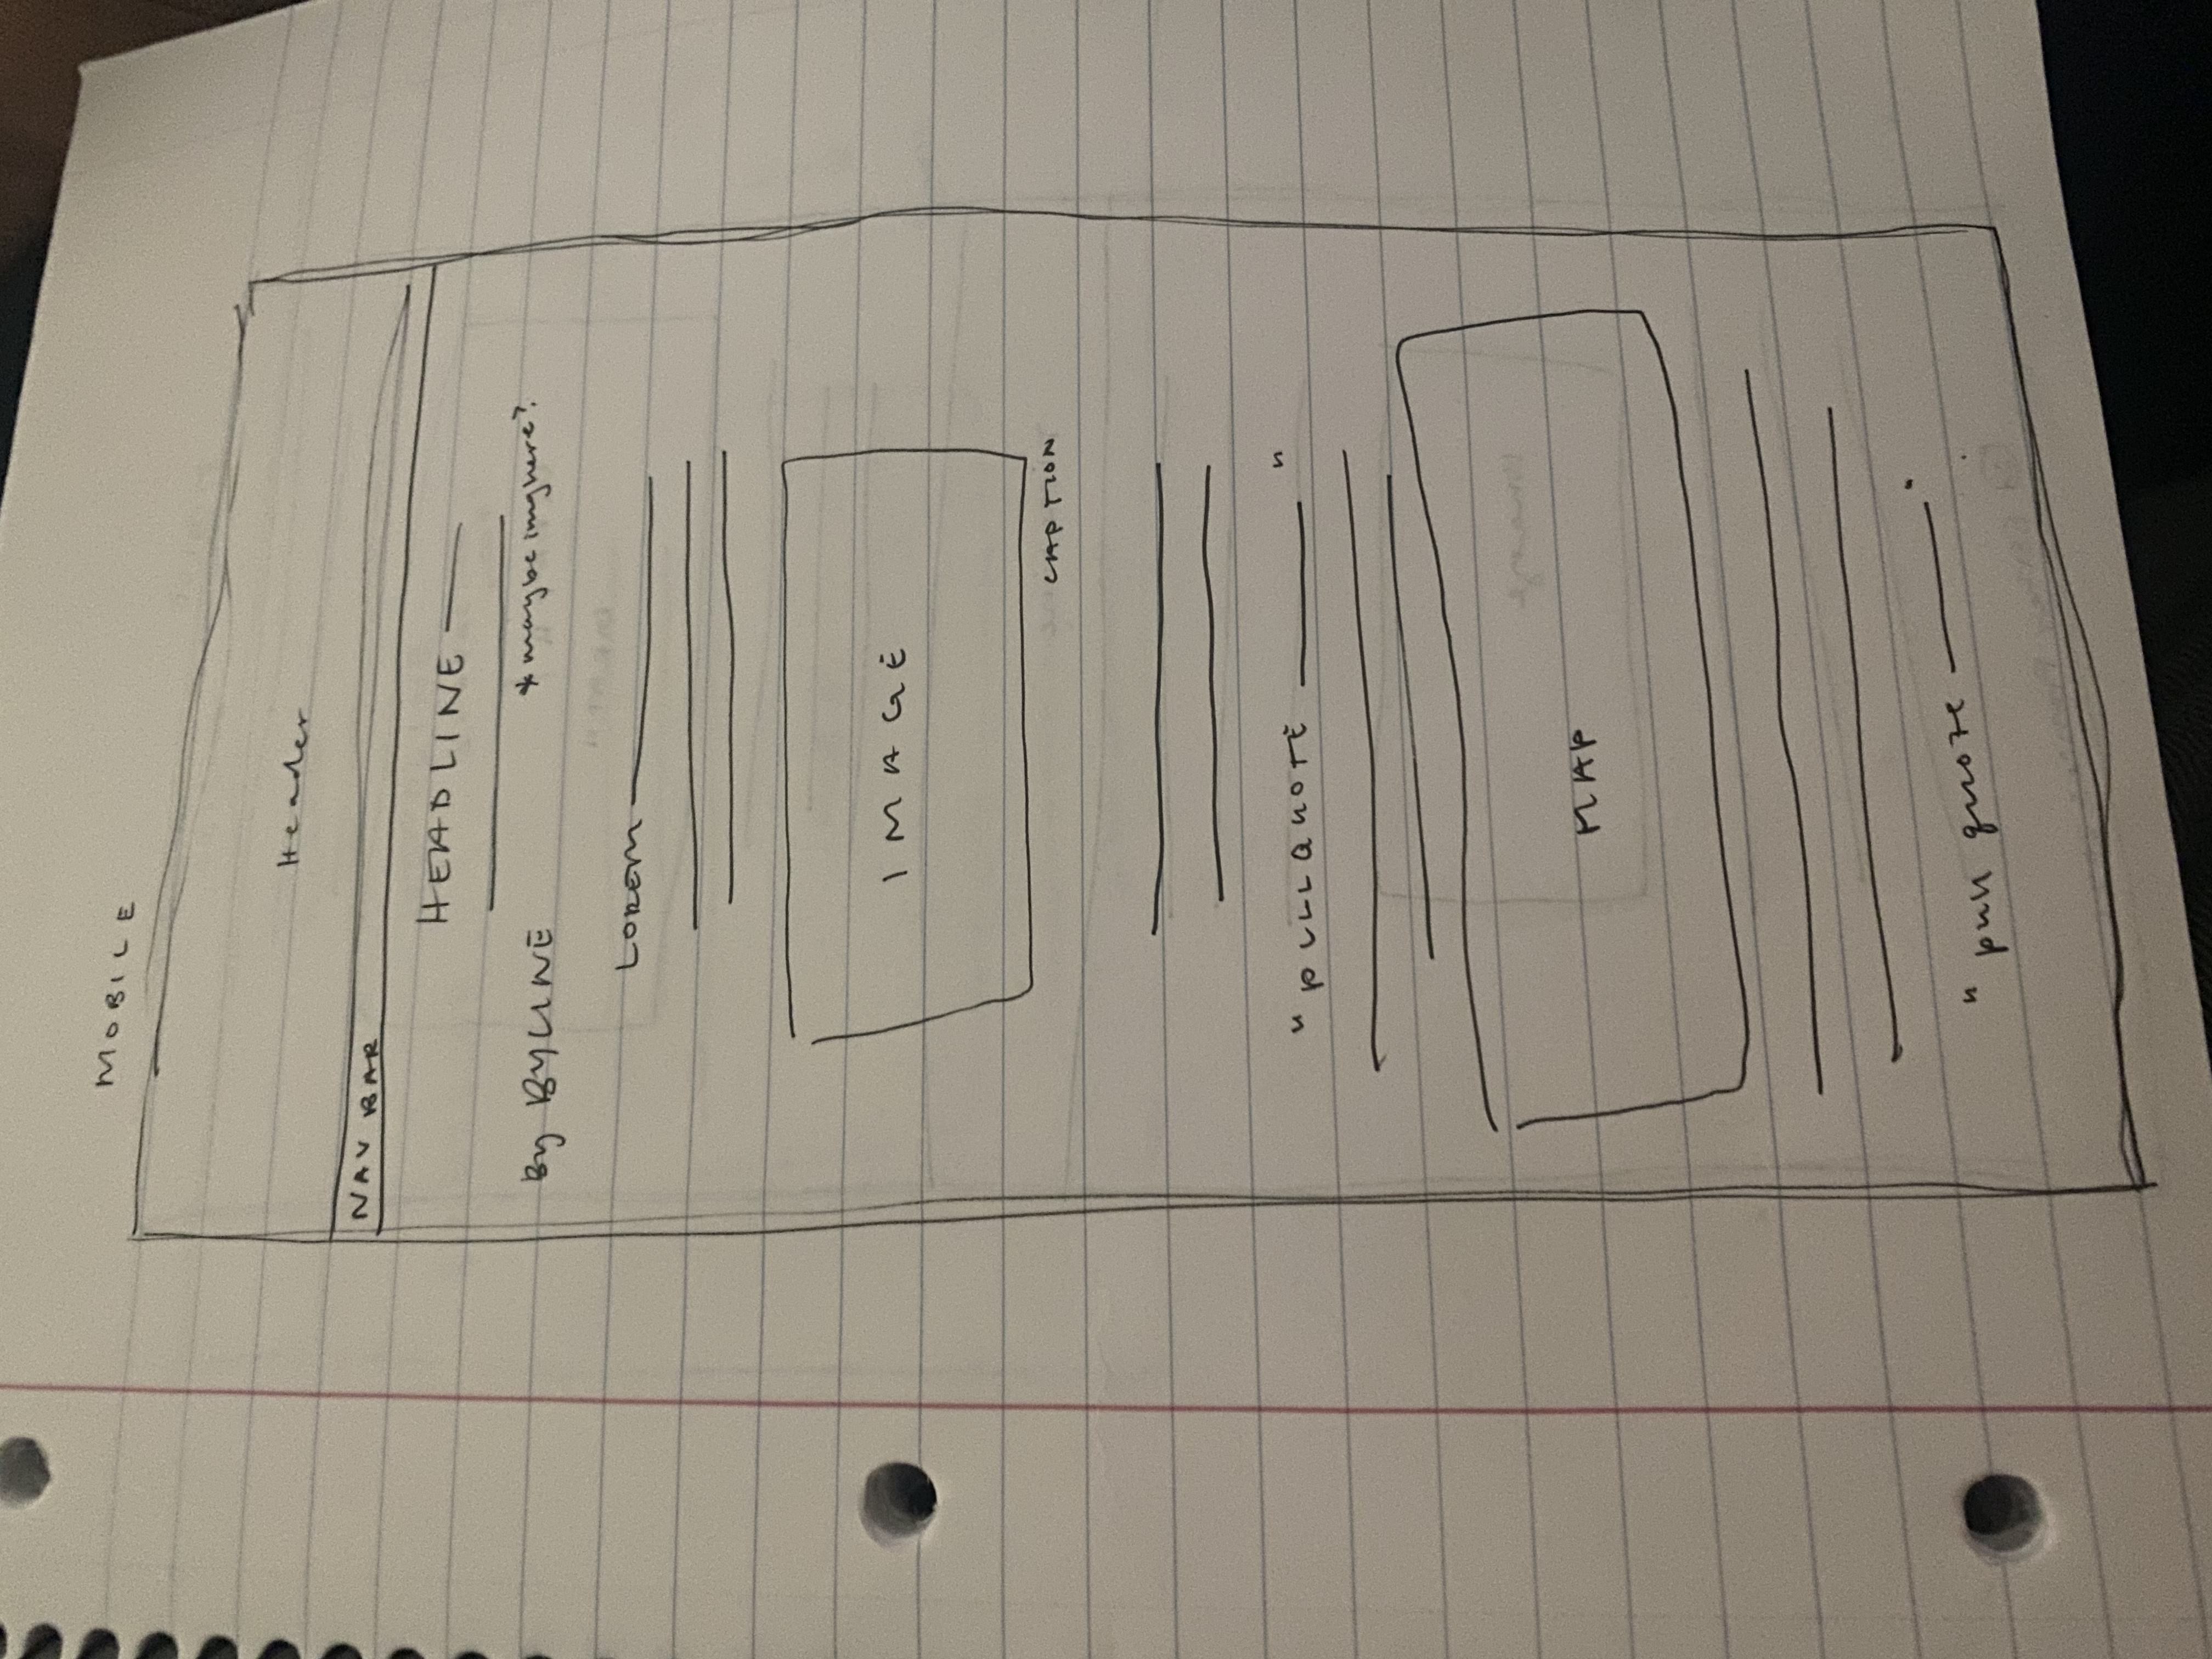 MOBILE
Header
NAV BAR
HEADLINE
* maybe img here?
By BYLINE
LOREM
IMAGE
CAPTION
"PULLQUOTE "
MAP
"pull quote "